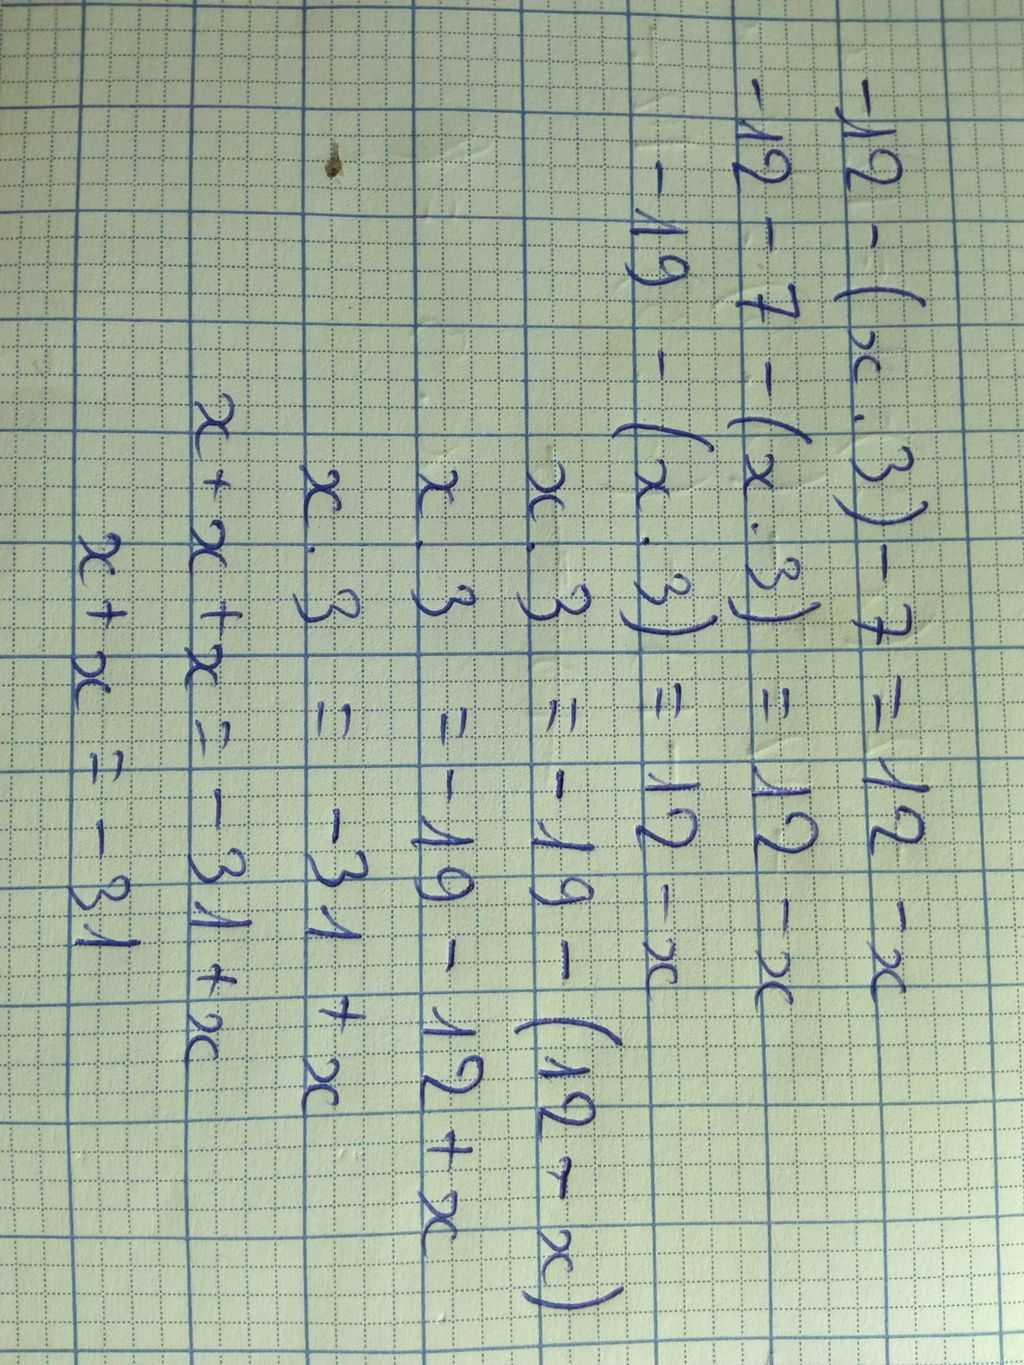 -12 - (x . 3) - 7 = 12 - x
-12 - 7 - (x . 3) = 12 - x
-19 - (x . 3) = 12 - x
x . 3 = -19 - (12 - x)
x . 3 = -19 - 12 + x
x . 3 = -31 + x
x + x + x = -31 + x
x + x = -31